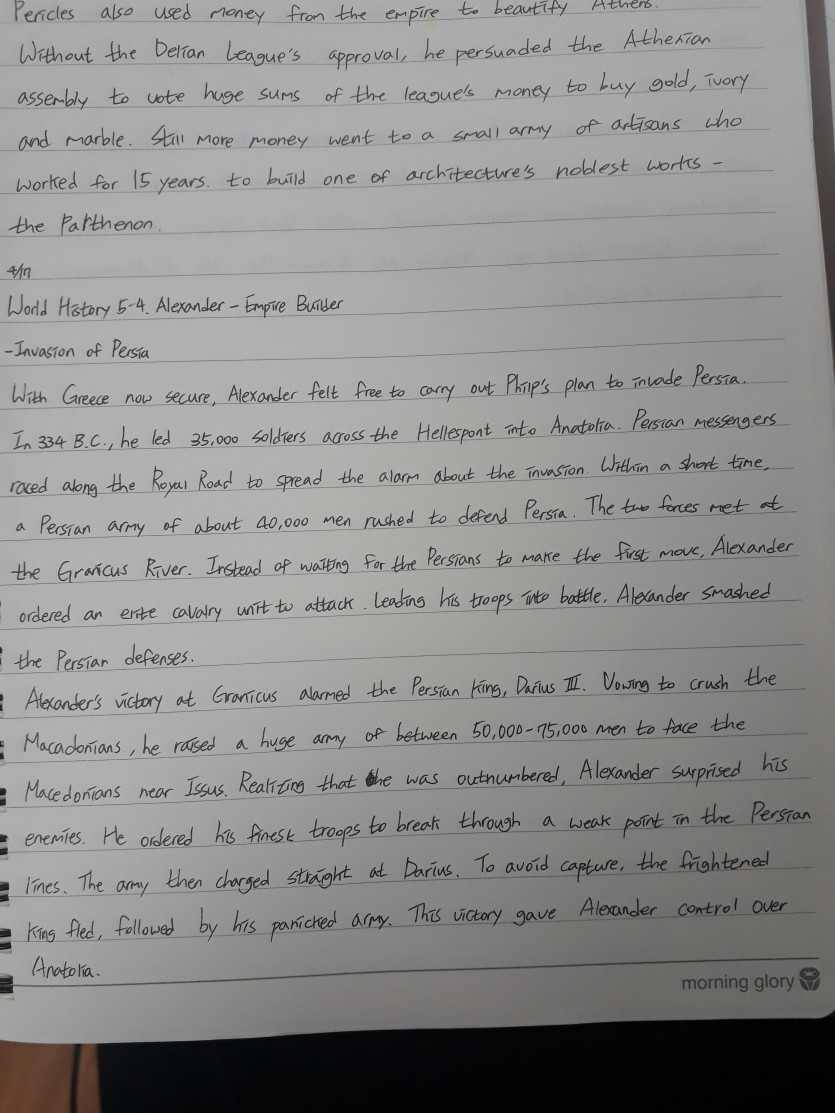 Pericles also used money from the empire to beautify Athens.
Without the Delian League's approval, he persuaded the Athenian
assembly to vote huge sums of the league's money to buy gold, ivory
and marble. Still more money went to a small army of artisans who
worked for 15 years. to build one of architecture's noblest works -
the Parthenon.
4/17
World History 5-4. Alexander - Empire Builder
- Invasion of Persia
With Greece now secure, Alexander felt free to carry out Philip's plan to invade Persia.
In 334 B.C., he led 35,000 soldiers across the Hellespont into Anatolia. Persian messengers
raced along the Royal Road to spread the alarm about the invasion. Within a short time,
a Persian army of about 40,000 men rushed to defend Persia. The two forces met at
the Granicus River. Instead of waiting for the Persians to make the first move, Alexander
ordered an elite cavalry unit to attack. Leading his troops into battle, Alexander smashed
the Persian defenses.
Alexander's victory at Granicus alarmed the Persian king, Darius III. Vowing to crush the
Macadonians, he raised a huge army of between 50,000-75,000 men to face the
Macedonians near Issus. Realizing that he was outnumbered, Alexander surprised his
enemies. He ordered his finest troops to break through a weak point in the Persian
lines. The army then charged straight at Darius. To avoid capture, the frightened
king fled, followed by his panicked army. This victory gave Alexander control over
Anatolia.
morning glory